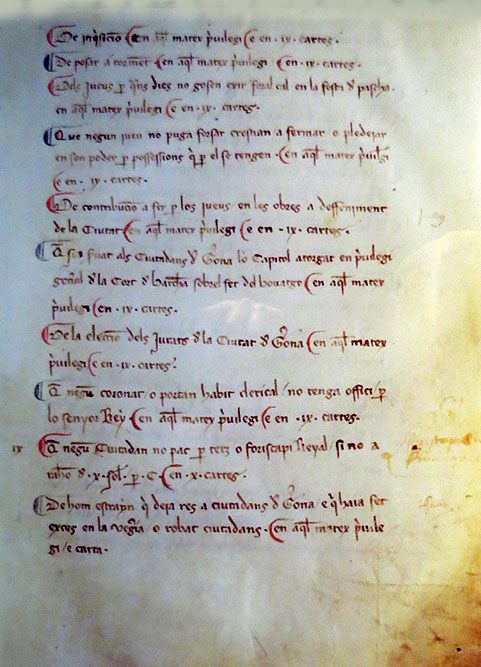 De inqisicio En aql̄ matex p̄uilegi e en · ix · cartes ·
De posar a tormēt en aql̄ matex p̄uilegi en · ix · cartes ·
Dels jueus p q̄ns dies no gosen exir fora lcal en la festa d̄ pascha
en aql̄ matex p̄uilegi e en · ix · cartes ·
Que negun jueu no puga forsar crestian a fermar o pledejar
en son poder p possessions q̄ p el se tengen · En aql̄ matex p̄uilegi
e en · ix · cartes ·
De contribucio a fer p los jueus en les obres a deffeniment
de la Ciutat en aql̄ matex p̄uilegi e en · ix · cartes ·
als Ciutadans d̄ Gōna lo Capitol atorgat en p̄uilegi
gen̄al d̄la Cort d̄ Barch̄a sobrel fet del bouatge en aql̄ matex
p̄uilegi en · ix · cartes ·
De la eleccio dels Jurats d̄la Ciutat d̄ Gōna en aql̄ matex
p̄uilegi e en · ix · cartes ·
Q̄ negū coronat o portan habit clerical no tenga offici p
lo senyor Rey En aql̄ matex p̄uilegi e en · ix · cartes ·
ix Q̄ negū Ciutadan no pac p terz o foriscapi Reyal si no a
raho d̄ · x · sol̄ · p · C · En · x · cartes ·
De hom estrayn q̄ deja res a ciutadans d̄ Gōna e q̄ haia fet
exces en la veg̃ia o robat ciutadans · En aql̄ matex p̄uile
gi e carta ·